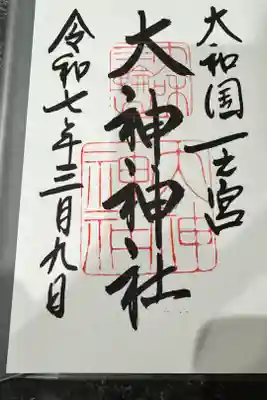 大和国一之宮
大神神社
令和七年三月九日